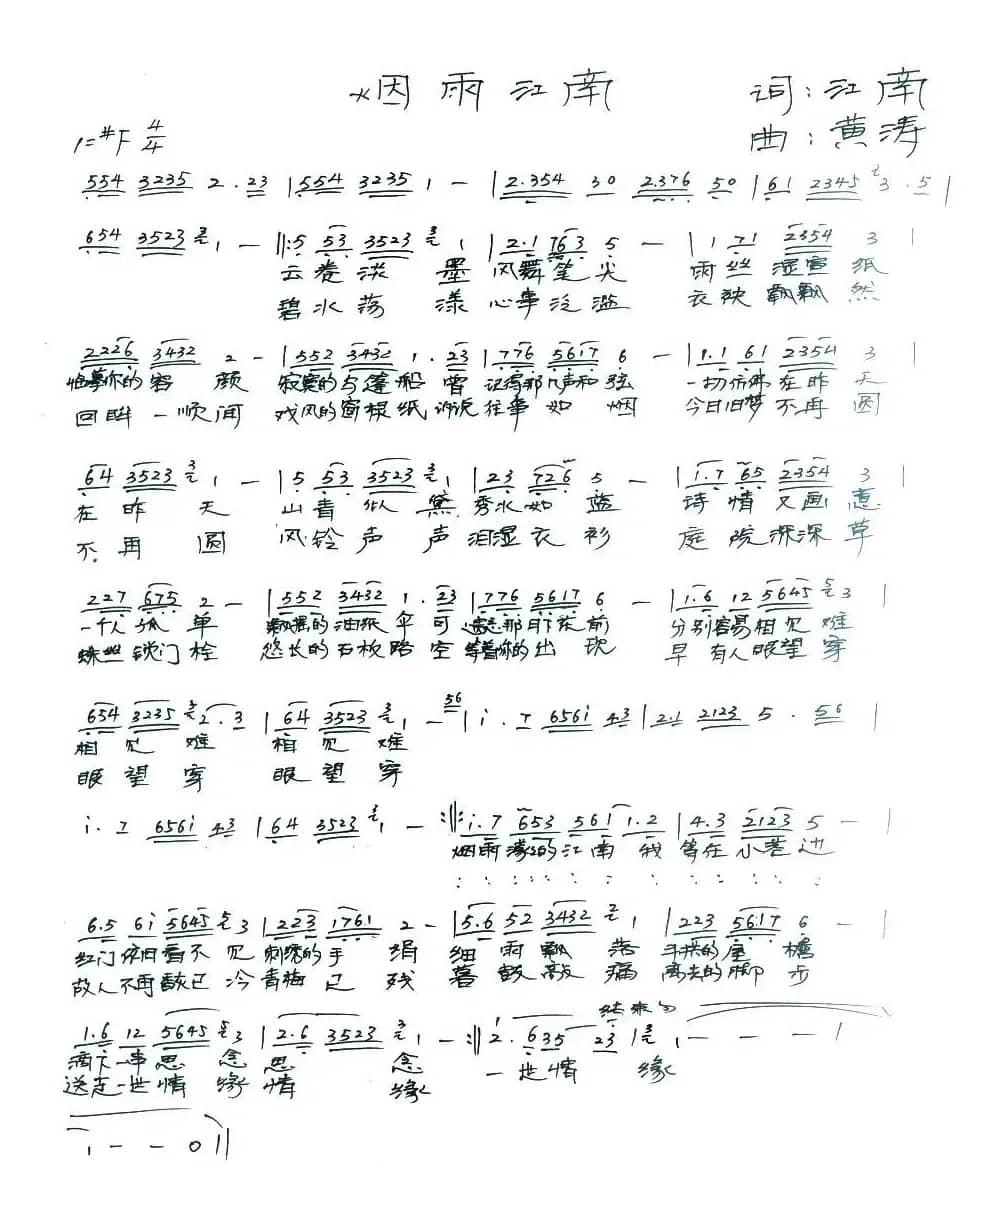 烟雨江南 词:江南
1=#F 4/4 曲:黄涛
554 3235 2·23 |554 3235 1 - |2·354 30 2·376 50 |61 2345 3·5|
654 3523 1 - ‖:5 53 3523 1 |2·1 763 5 - |1 71 2354 3 |
云卷淡墨 风舞笔尖 雨丝湿宣纸
碧水荡漾 心事泛滥 衣袂飘飘然
2226 3432 2 - |552 3432 1·23 |776 5617 6 - |1·1 61 2354 3 |
临摹你的容颜 寂寞的乌篷船 曾记得那几声和弦 一切仿佛在昨天
回眸一顺间 戏风的窗棂纸 诉说往事如烟 今日旧梦不再圆
64 3523 1 - |5 53 3523 1 |23 726 5 - |1·7 65 2354 3 |
在昨天 山青似黛 秀水如蓝 诗情又画意
不再圆 风铃声声 泪湿衣衫 庭院深深草
227 675 2 - |552 3432 1·23 |776 5617 6 - |1·6 12 5645 3 |
一个人孤单 飘摇的油纸伞 可 那月下花前 分别容易相见难
蛛丝锁门栓 悠长的石板路 空等着你的出现 早有人眼望穿
654 3235 2·3 |64 3523 1 - 56 |i·7 656i 43 |2·1 2123 5·56 |
相见难 相见难
眼望穿 眼望穿
i·7 656i 43 |64 3523 1 - :‖:i·7 653 561 1·2 |4·3 2123 5 - |
烟雨濛濛的江南 我等在小巷边
6·5 6i 5645 3 |223 1761 2 - |5·6 52 3432 1 |223 5617 6 - |
红门依旧看不见 刺绣的手绢 细雨飘落 斗拱的屋檐
故人不再 已冷 青梅已残 暮鼓敲痛 离去的脚步
1·6 12 5645 3 |2·6 3523 1 - :‖2·635 23 |1 - - - |
结束句
滴下一串思念 思念 一世情缘
送走一世情缘 情缘
1 - - 0‖